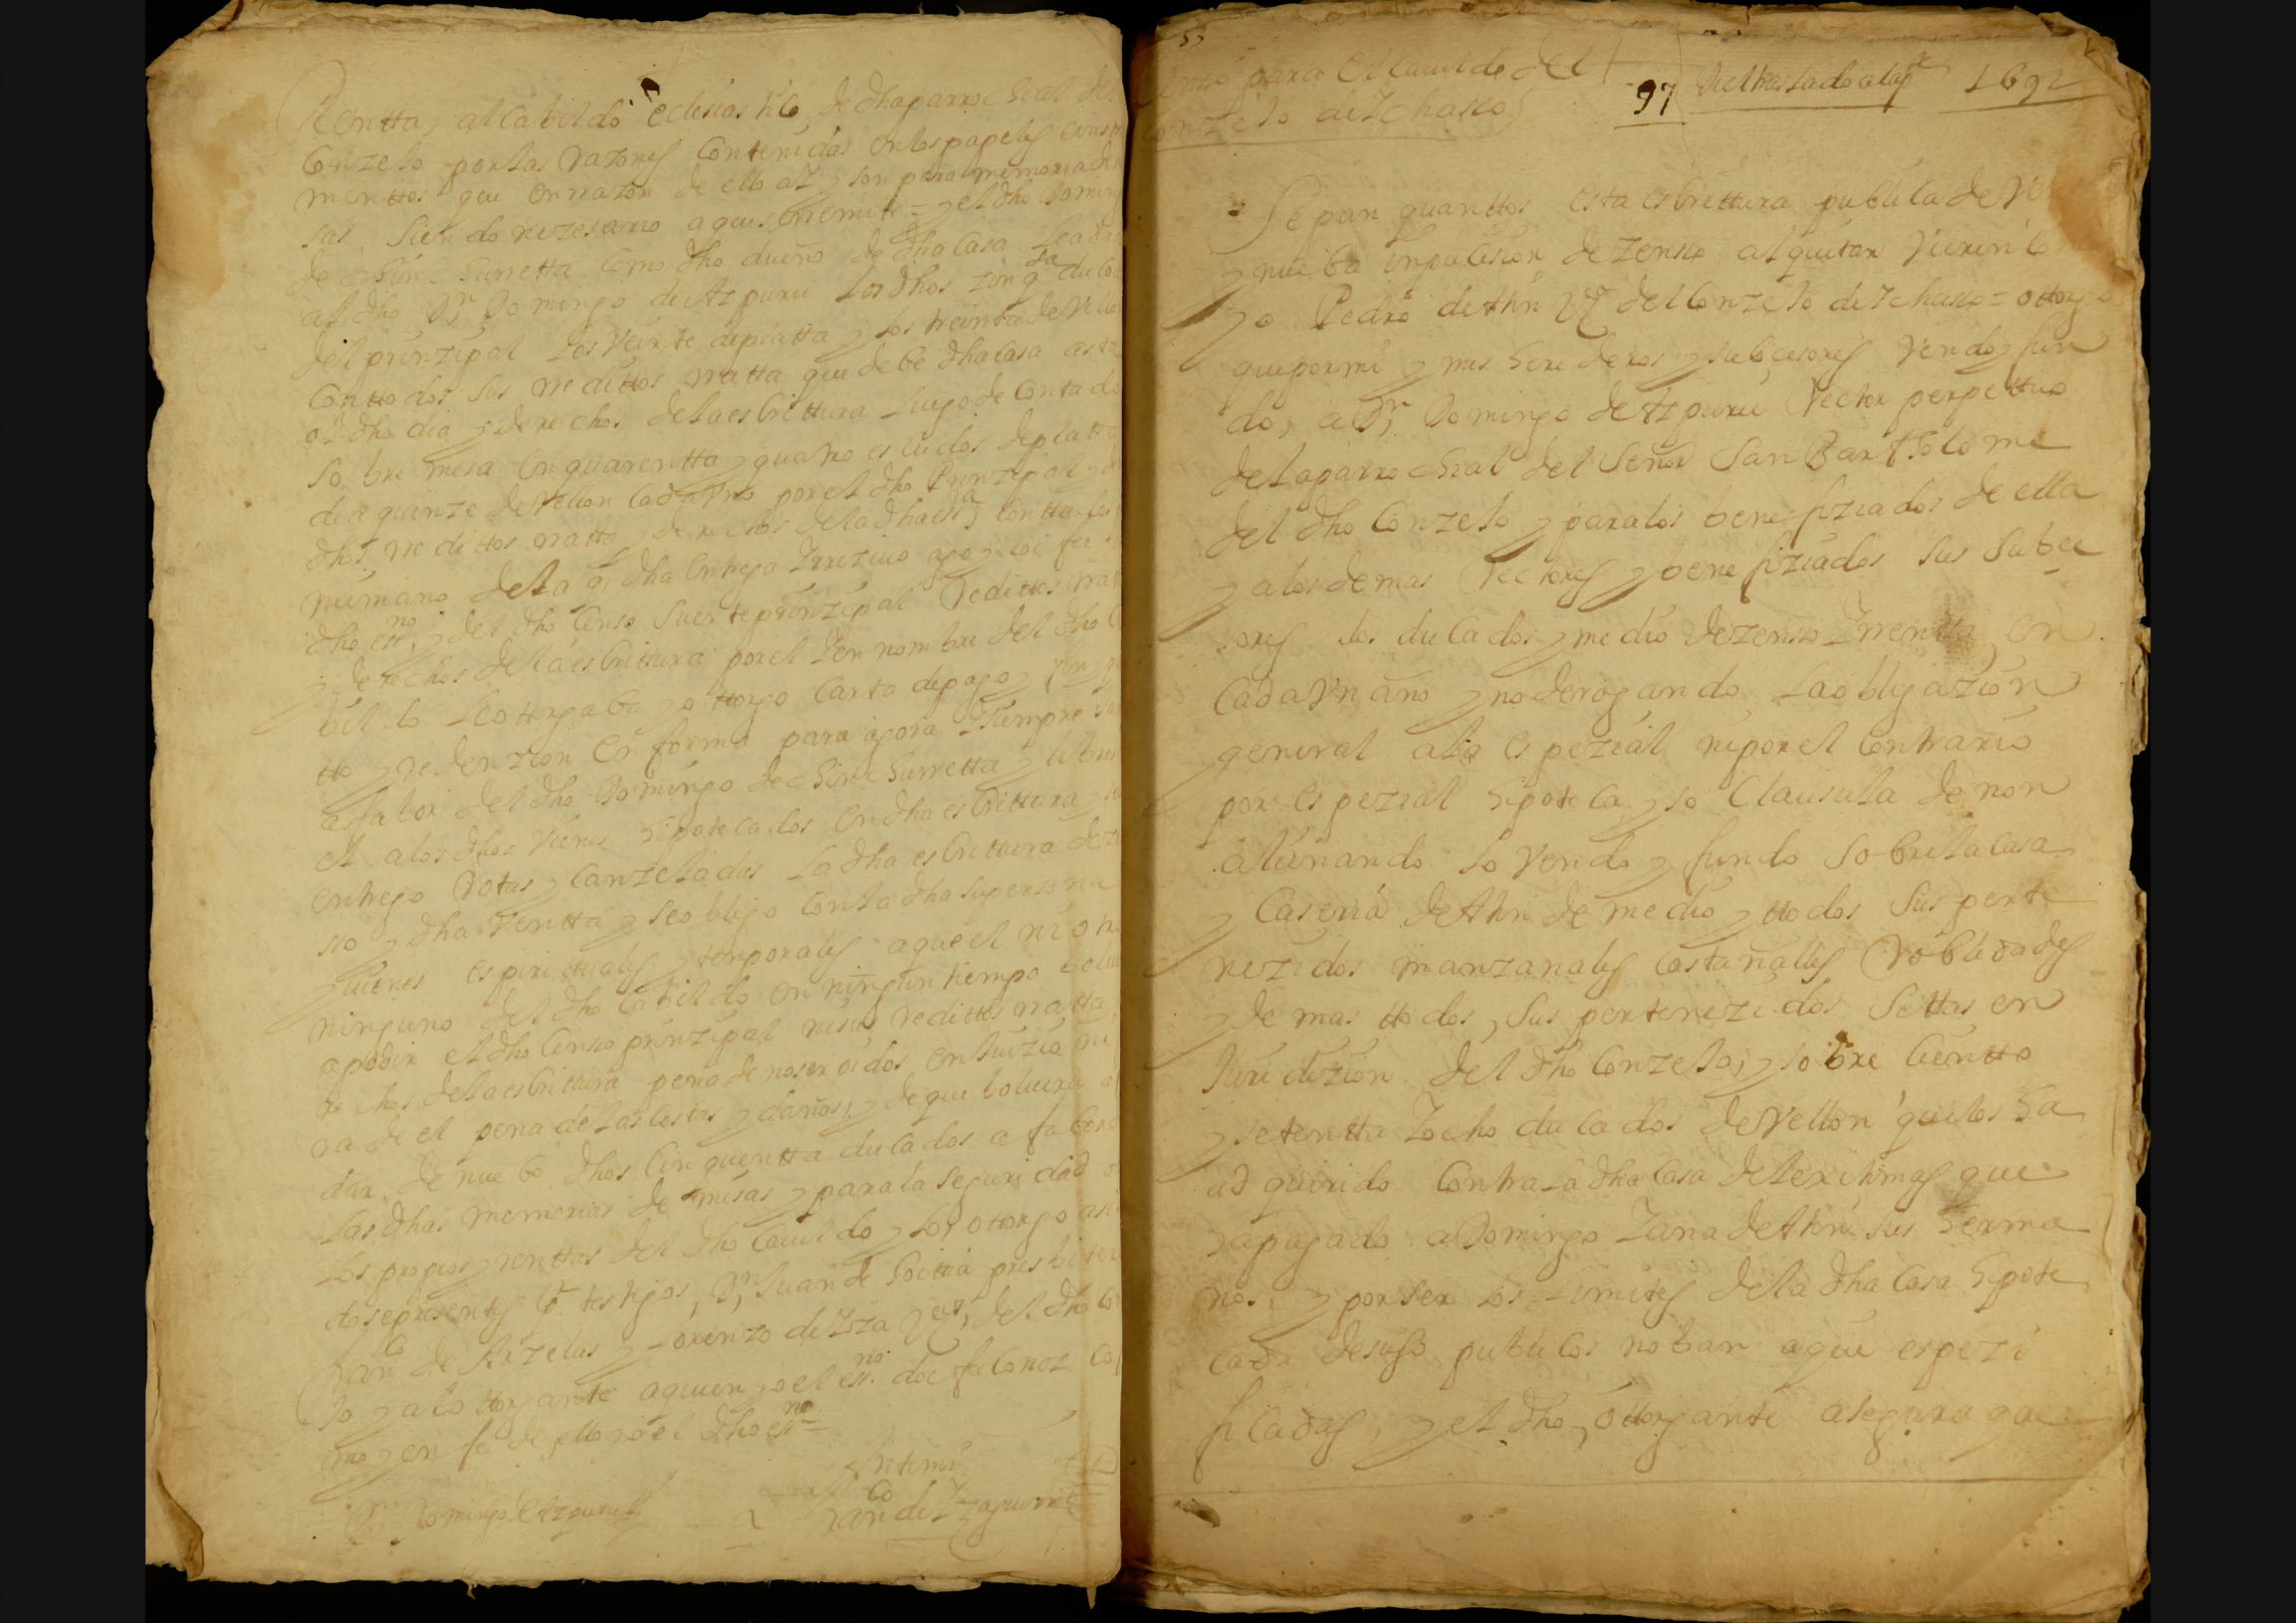 Rentta, al Cabildo eclesiastico de dha parrochial del
Conzejo por las razones Contenidas en los papeles e
menttos que en rrazon de ello ay y son para memoria de
sas siendo nezesario a que se rremite = y el dho Doming
de Chin Churretta como dho dueño de dha Casa
al dho Dn Domingo de Azpuru los dhos zinqta ducados
del prinzipal los veinte de platta y los treinta de vellon
Con ttodos sus redittos rratta que debe dha Casa asta
oy dho dia y derechos de la escrittura luego de Contado
sobre mesa en quarentta y quatro escudos de platta
de a quinze de vellon cada Uno por el dho Prinzipal y
dhos redittos rratta y derechos de la dha essra
mi mano de la q dha entrega y rrezivo yo doi fee
dho essno y del dho Censo suerte prinzipal Redittos rratta
y derechos de la escritura por el y en nombre del dho Ca
bildo le ottorgaba y ottorgo Carta de pago y fin y qui
tto y redenzion en forma para agora y siempre
a fabor del dho Domingo de Chin Churretta y
el a los dhos vienes hipotecados en dha escrittura
entrego Rotas y Canzeladas la dha escrittura de zen
so y dha Ventta y se obligo Con la dha su persona
y vienes espirittuales y temporales a que el ni otro
ninguno del dho Cabildo en ningun tiempo bolue
a pedir el dho Censo prinzipal ni sus redittos rratta
rechos de la escrittura pena de no ser oidos en Juizio ni
ra de el pena de las Costas y daños, y de que boluera a
dar de nuebo dhos Cinquentta ducados a fabor
las dhas memorias de misas y para la seguridad
los propios y renttas del dho Cauildo y lo ottorgo asi
do presentes por testigos, Dn Juan de Goitia presbitero
Franco de Arzelus y Lorenzo de Yza vezos del dho Con
jo y al ottorgante a quien yo el essno doi fee Conozco
mo y en fe de ello yo el dho essno =
Dn Domingo de Azpuru
Ante mi
Franco de Yzaguirre
Censo para el Cauildo del
Conzejo de Ychasso
97
Di el traslado a la pte 1692
Sepan quanttos esta escrittura publica de
y nueba inpusision de zenso al quitar vieren Co
yo Pedro de Athn vezo del Conzejo de Ychasso = ottorgo
que por mi y mis herederos y subçesores vendo y fun
do, a Dn Domingo de Azpuru Rector perpettuo
de la parrochial del Señor San Bartholome
del dho Conzejo y para los benefiziados de ella
y a los demas Rectores y benefiziados sus subce
sores dos ducados y medio de zenso y rrentta en
Cada Un año y no derogando la obligazion
general a la espezial ni por el Contrario
por espezial hipoteca y so Clausula de non
alienando lo vendo y fundo sobre la casa
y Caseria de Athn de medio y ttodos sus perte
nezidos manzanales Castañalles Robledades
y demas ttodos, sus pertenezidos Sittas en
Juridizion del dho Conzejo, y sobre Cientto
y setentta y ocho ducados de Vellon que los ha
adquirido Contra la dha Casa de lexitimas que
ha pagado a Domingo y ana de Athn sus herma
nos, y por ser los Limites de la dha Casa hipote
cada desuso publicos no ban aqui espezi
ficadas, y el dho, ottorgante asegura que